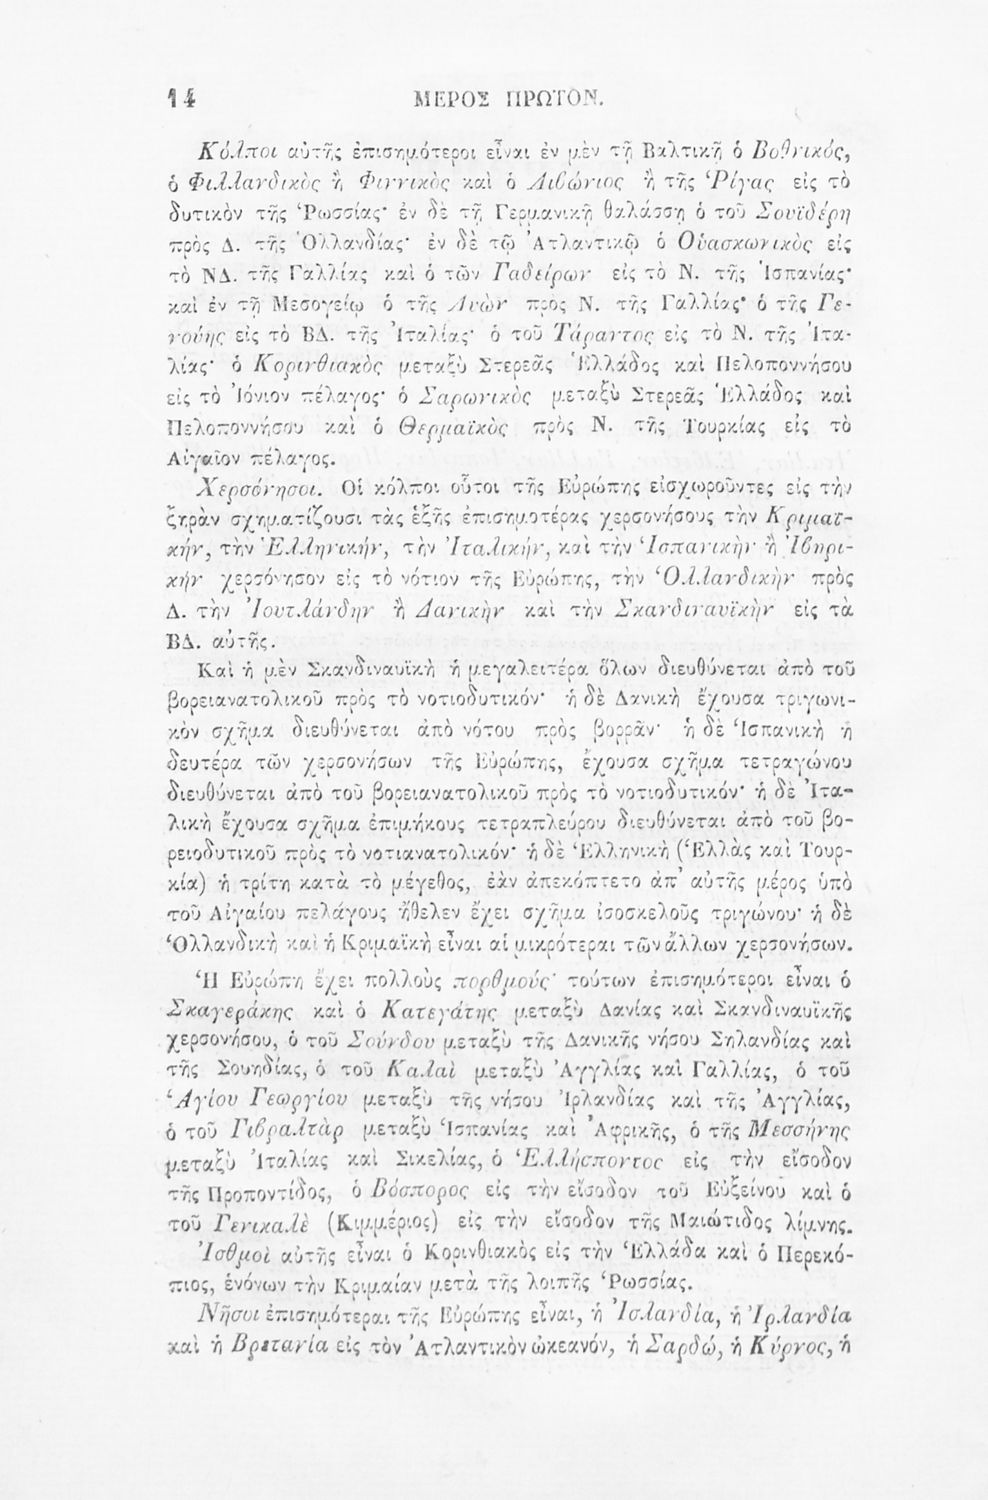 14 ΜΕΡΟΣ ΠΡΩΤΟΝ.
Κόλποι αὐτῆς ἐπισημότεροι εἶναι ἐν μὲν τῇ Βαλτικῇ ὁ Βοθνικός,
ὁ Φιλλανδικὸς ἢ Φιννικὸς καὶ ὁ Λιβώνιος ἢ τῆς Ῥίγας εἰς τὸ
δυτικὸν τῆς Ῥωσσίας· ἐν δὲ τῇ Γερμανικῇ θαλάσσῃ ὁ τοῦ Σουϊδέρη
πρὸς Δ. τῆς Ὁλλανδίας· ἐν δὲ τῷ Ἀτλαντικῷ ὁ Οὐασκωνικὸς εἰς
τὸ ΝΔ. τῆς Γαλλίας καὶ ὁ τῶν Γαδείρων εἰς τὸ Ν. τῆς Ἱσπανίας·
καὶ ἐν τῇ Μεσογείῳ ὁ τῆς Λυὼν πρὸς Ν. τῆς Γαλλίας· ὁ τῆς Γε-
νούης εἰς τὸ ΒΔ. τῆς Ἰταλίας· ὁ τοῦ Τάραντος εἰς τὸ Ν. τῆς Ἰτα-
λίας· ὁ Κορινθιακὸς μεταξὺ Στερεᾶς Ἑλλάδος καὶ Πελοποννήσου
εἰς τὸ Ἰόνιον πέλαγος· ὁ Σαρωνικὸς μεταξὺ Στερεᾶς Ἑλλάδος καὶ
Πελοποννήσου καὶ ὁ Θερμαϊκὸς πρὸς Ν. τῆς Τουρκίας εἰς τὸ
Αἰγαῖον πέλαγος.
Χερσόνησοι. Οἱ κόλποι οὗτοι τῆς Εὐρώπης εἰσχωροῦντες εἰς τὴν
ξηρὰν σχηματίζουσι τὰς ἑξῆς ἐπισημοτέρας χερσονήσους τὴν Κριμαϊ-
κήν, τὴν Ἑλληνικήν, τὴν Ἰταλικήν, καὶ τὴν Ἱσπανικὴν ἢ Ἰβηρι-
κὴν χερσόνησον εἰς τὸ νότιον τῆς Εὐρώπης, τὴν Ὁλλανδικὴν πρὸς
Δ. τὴν Ἰουτλάνδην ἢ Δανικὴν καὶ τὴν Σκανδιναυϊκὴν εἰς τὰ
ΒΔ. αὐτῆς.
Καὶ ἡ μὲν Σκανδιναυϊκὴ ἡ μεγαλειτέρα ὅλων διευθύνεται ἀπὸ τοῦ
βορειανατολικοῦ πρὸς τὸ νοτιοδυτικόν· ἡ δὲ Δανικὴ ἔχουσα τριγωνι-
κὸν σχῆμα διευθύνεται ἀπὸ νότου πρὸς βορρᾶν· ἡ δὲ Ἱσπανικὴ ἡ
δευτέρα τῶν χερσονήσων τῆς Εὐρώπης, ἔχουσα σχῆμα τετραγώνου
διευθύνεται ἀπὸ τοῦ βορειανατολικοῦ πρὸς τὸ νοτιοδυτικόν· ἡ δὲ Ἰτα-
λικὴ ἔχουσα σχῆμα ἐπιμήκους τετραπλεύρου διευθύνεται ἀπὸ τοῦ βο-
ρειοδυτικοῦ πρὸς τὸ νοτιανατολικόν· ἡ δὲ Ἑλληνικὴ (Ἑλλὰς καὶ Τουρ-
κία) ἡ τρίτη κατὰ τὸ μέγεθος, ἐὰν ἀπεκόπτετο ἀπ’ αὐτῆς μέρος ὑπὸ
τοῦ Αἰγαίου πελάγους ἤθελεν ἔχει σχῆμα ἰσοσκελοῦς τριγώνου· ἡ δὲ
Ὁλλανδικὴ καὶ ἡ Κριμαϊκὴ εἶναι αἱ μικρότεραι τῶν ἄλλων χερσονήσων.
Ἡ Εὐρώπη ἔχει πολλοὺς πορθμούς· τούτων ἐπισημότεροι εἶναι ὁ
Σκαγεράκης καὶ ὁ Κατεγάτης μεταξὺ Δανίας καὶ Σκανδιναυϊκῆς
χερσονήσου, ὁ τοῦ Σούνδου μεταξὺ τῆς Δανικῆς νήσου Σηλανδίας καὶ
τῆς Σουηδίας, ὁ τοῦ Καλαὶ μεταξὺ Ἀγγλίας καὶ Γαλλίας, ὁ τοῦ
Ἁγίου Γεωργίου μεταξὺ τῆς νήσου Ἰρλανδίας καὶ τῆς Ἀγγλίας,
ὁ τοῦ Γιβραλτὰρ μεταξὺ Ἱσπανίας καὶ Ἀφρικῆς, ὁ τῆς Μεσσήνης
μεταξὺ Ἰταλίας καὶ Σικελίας, ὁ Ἑλλήσποντος εἰς τὴν εἴσοδον
τῆς Προποντίδος, ὁ Βόσπορος εἰς τὴν εἴσοδον τοῦ Εὐξείνου καὶ ὁ
τοῦ Γενικαλὲ (Κιμμέριος) εἰς τὴν εἴσοδον τῆς Μαιώτιδος λίμνης.
Ἰσθμοὶ αὐτῆς εἶναι ὁ Κορινθιακὸς εἰς τὴν Ἑλλάδα καὶ ὁ Περεκό-
πιος, ἑνόνων τὴν Κριμαίαν μετὰ τῆς λοιπῆς Ῥωσσίας.
Νῆσοι ἐπισημότεραι τῆς Εὐρώπης εἶναι, ἡ Ἰσλανδία, ἡ Ἰρλανδία
καὶ ἡ Βρετανία εἰς τὸν Ἀτλαντικὸν ὠκεανόν, ἡ Σαρδώ, ἡ Κύρνος, ἡ